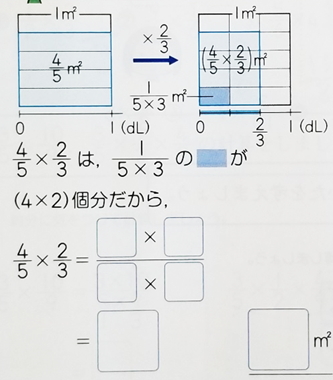 1m² ×2/3 1m²
4/5 m² (4/5×2/3)m²
1/(5×3) m²
0 1 (dL) 0 2/3 1 (dL)
4/5×2/3 は, 1/(5×3) の が
(4×2)個分だから,
4/5×2/3= □×□/□×□
=□ □ m²